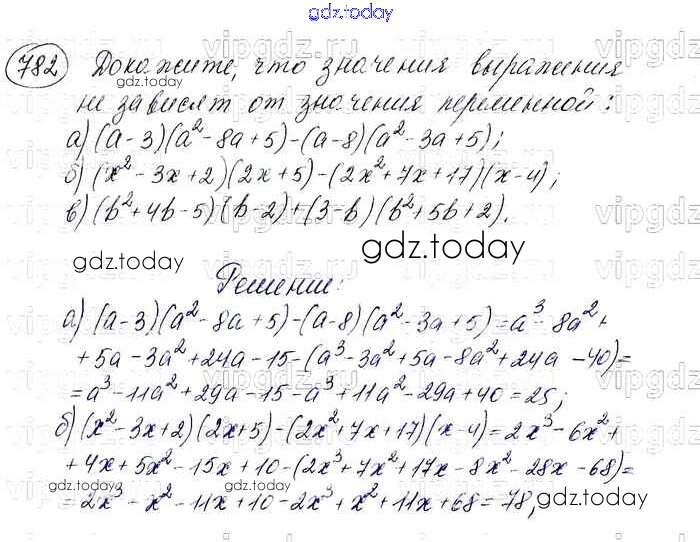 gdz.today
782 Докажите, что значения выражения
не зависят от значения переменной:
а) (a-3)(a²-8a+5)-(a-8)(a²-3a+5);
б) (x²-3x+2)(2x+5)-(2x²+7x+17)(x-4);
в) (b²+4b-5)(b-2)+(3-b)(b²+5b+2).
gdz.today
gdz.today
Решение:
а) (a-3)(a²-8a+5)-(a-8)(a²-3a+5)=a³-8a²+
+5a-3a²+24a-15-(a³-3a²+5a-8a²+24a-40)=
=a³-11a²+29a-15-a³+11a²-29a+40=25;
б) (x²-3x+2)(2x+5)-(2x²+7x+17)(x-4)=2x³-6x²+
+4x+5x²-15x+10-(2x³+7x²+17x-8x²-28x-68)=
=2x³-x²-11x+10-2x³+x²+11x+68=78;
gdz.today
gdz.today